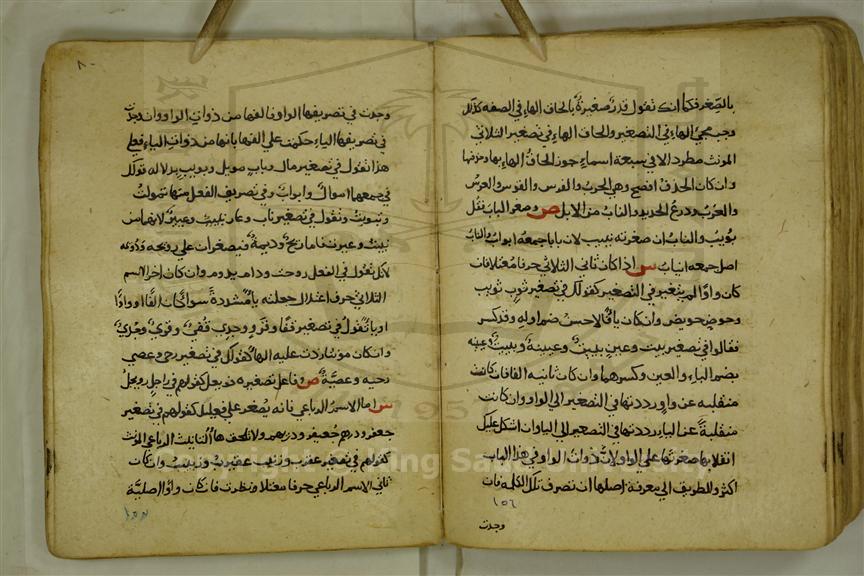 بالصغر فكما انك تقول قدر صغيرة بالحاق الهاء في الصفه كذلك
وجب مجئ الهاء في التصغير والحاق الهاء في تصغير الثلاثي
المونث مطرد الا في سبعة اسماء يجوز الحاق الهاء بها وحذفها
وان كان الحذف افصح وهي الحرب والفرس والقوس والعرس
والعرب ودرع الحديد والناب من الابل ص وصغر الباب تقل
بويب والناب ان صغرته نييب لان بابا جمعه ابواب والناب
اصل جمعه انياب س اذا كان ثاني الثلاثي حرفا معتلا فان
كان واوا لم يتغير في التصغير كقولك في تصغير ثوب ثويب
وحوض حويض وان كان ياء فالاحسن ضم اوله وقد كسر
فقالوا في تصغير بيت وعين بييت وعيينة وبييت وعيينه
بضم الباء والعين وكسرهما وان كان ثانيه الفا فان كانت
منقلبه عن واو رددتها في التصغير الى الواو وان كانت
منقلبة عن الياء رددتها في التصغير الى الياء وان اشكل عليك
انقلابها صغرتها على الواو لان ذوات الواو في هذا الباب
اكثر والطريق الى معرفة اصلها ان تصرف تلك الكلمه فان
١٥٦
وجدت
٨٠
وجدت في تصريفها الواو فالفها من ذوات الواو وان وجدت
في تصريفها الياء حكمت على الفها بانها من ذوات الياء فعلى
هذا تقول في تصغير مال وباب مويل وبويب بدلاله قولك
في جمعها اموال وابواب وفي تصريف الفعل منها تمولت
وتبوبت وتقول في تصغير ناب وعار نييب وعيير لانهما من
نيبت وعيرت فاما ريح وديمة فيصغران على رويحه ودويمه
لانك تقول في الفعل روحت ودام يدوم وان كان اخر الاسم
الثلاثي حرف اعتلال جعلته ياء مشددة سواء كان الفا او واوا
او ياء تقول في تصغير قفا وفرو وجدي قفي وفري وجدي
وان كان مونثا زدت عليه الهاء كقولك في تصغير رحى وعصى
رحيه وعصية ص وفاعل تصغيره فويعل كقولهم في راجل رويجل
س اما الاسم الرباعي فانه يصغر على فعيعل كقولهم في تصغير
جعفر ودرهم جعيفر ودريهم ولا تلحق هاء التانيث الرباعي المونث
كقولهم في تصغير عقرب وزينب عقيرب وزيينب وان كان
ثاني الاسم الرباعي حرفا معتلا ونظرت فان كان واوا اصلية